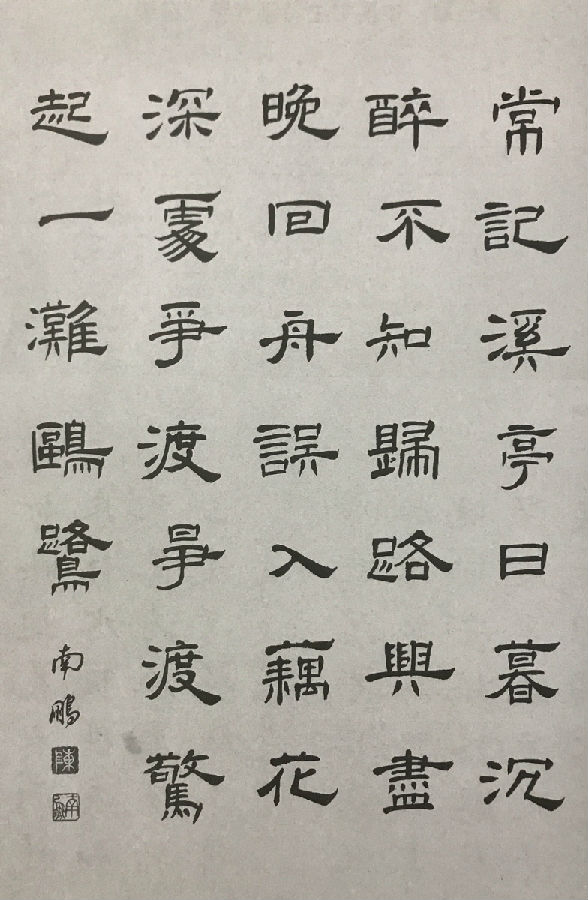 常記溪亭日暮沉
醉不知歸路興盡
晚回舟誤入藕花
深處爭渡爭渡驚
起一灘鷗鷺
南鵬
陳